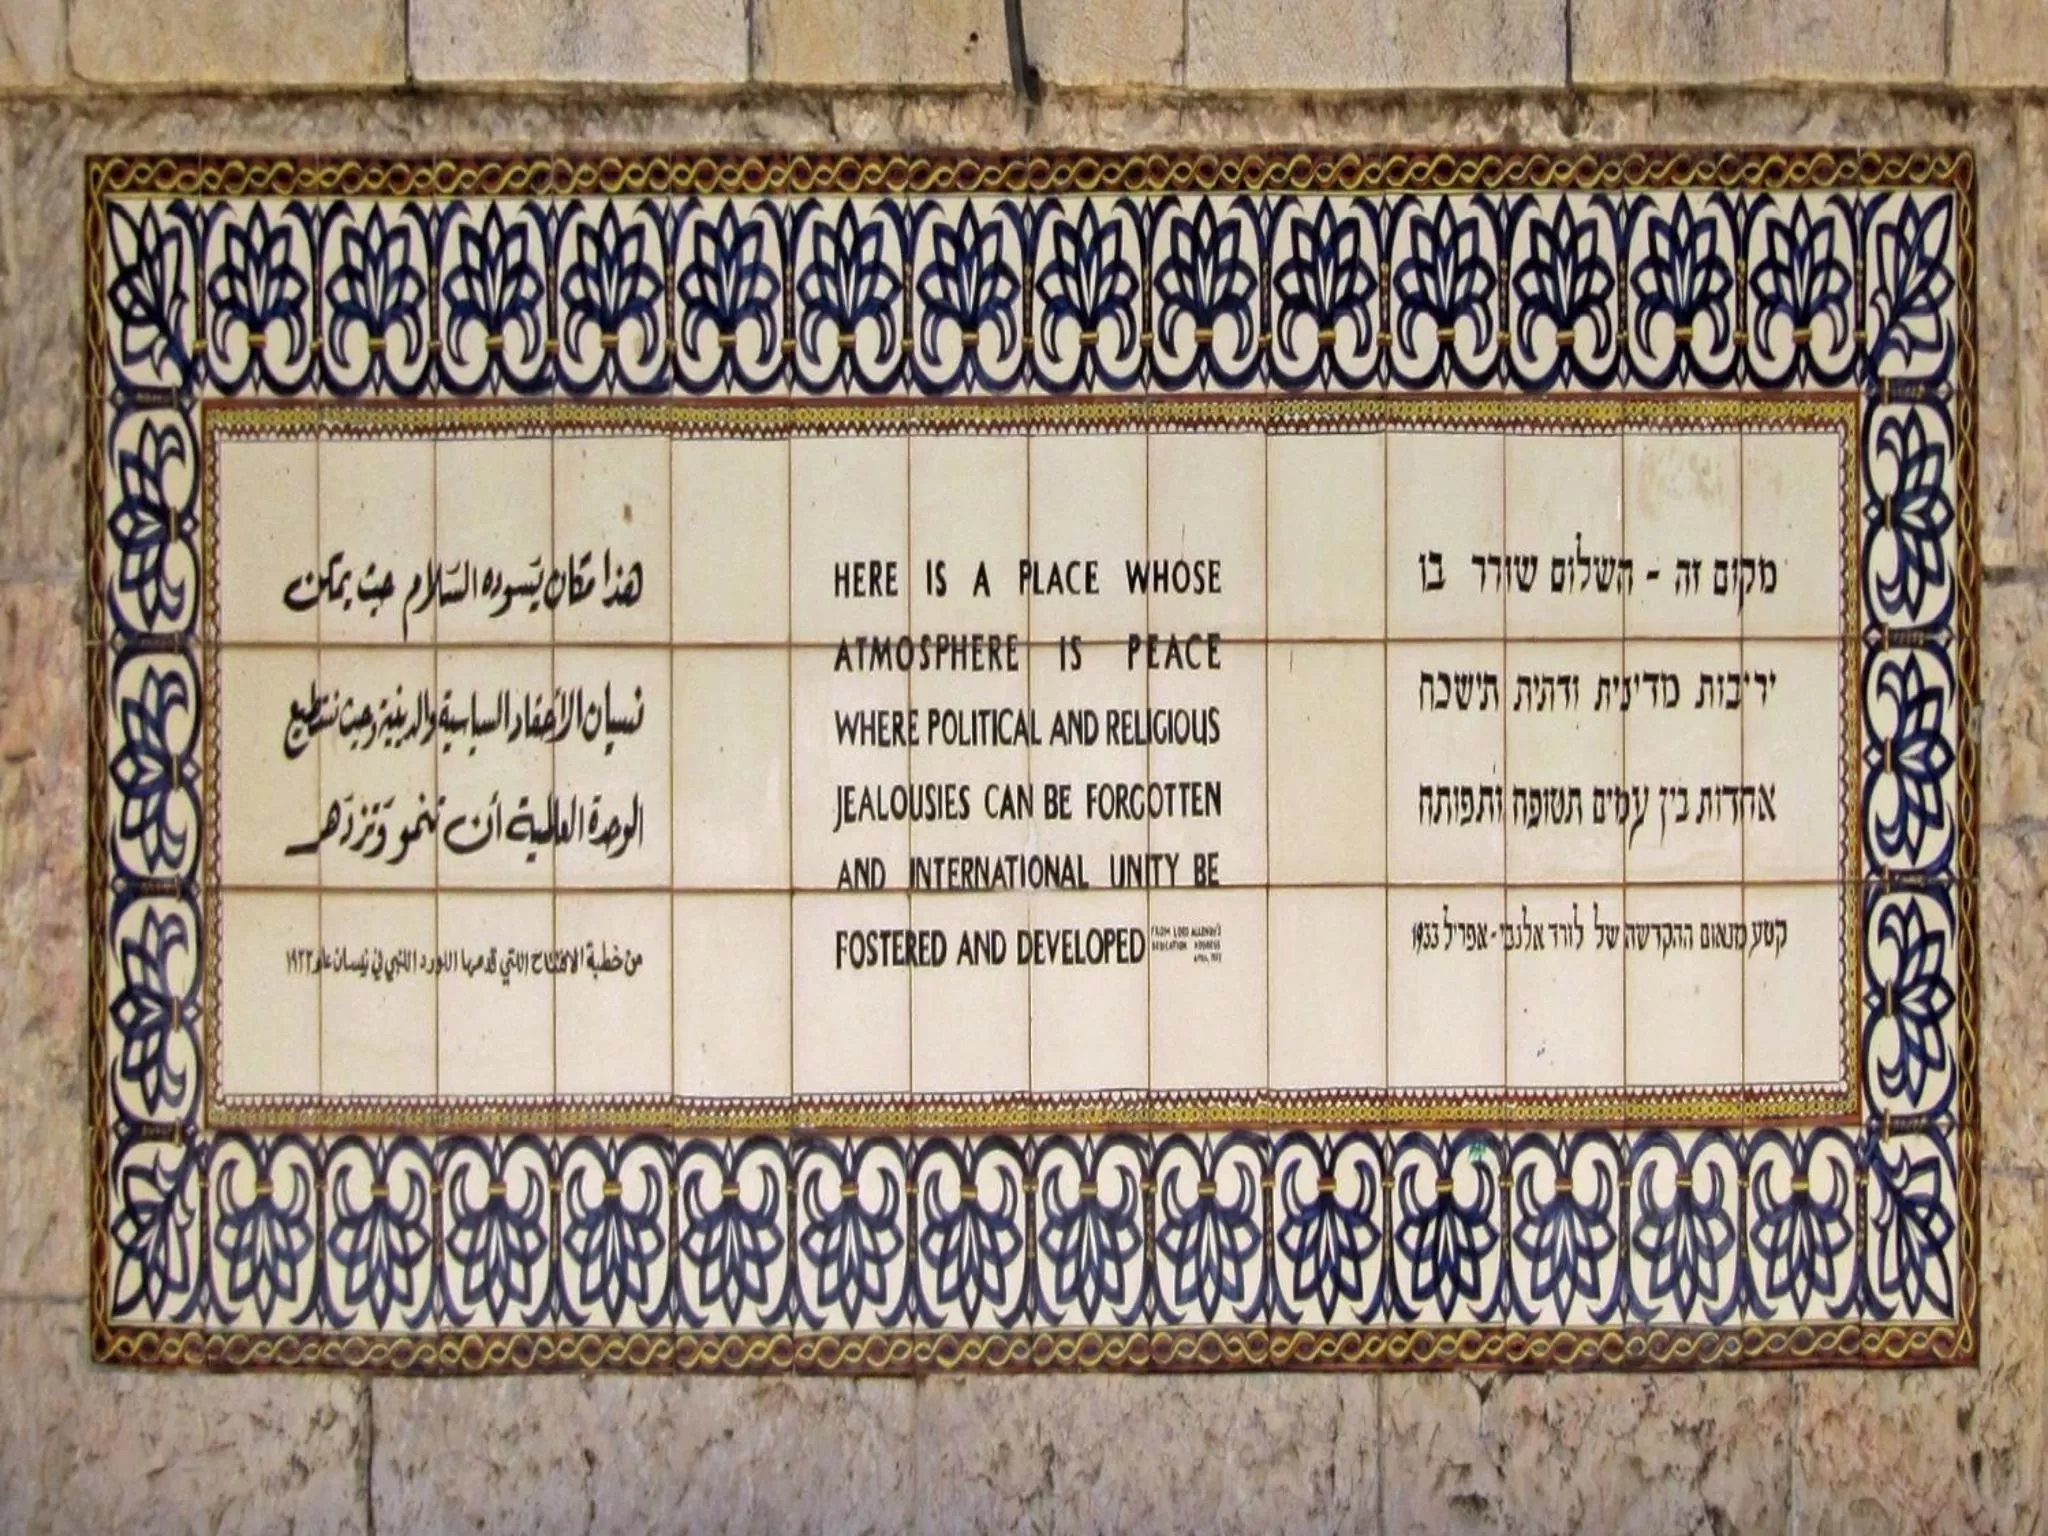 هذا مكان يَسوده السَّلام حيث يمكن
نسيان الأحقاد السياسية والدينية وحيث نستطيع
الوحدة العالمية أن تنمو وتزدهر
من خطبة الافتتاح اللتي قدمها اللورد اللنبي في نيسان عام ١٩٣٣
HERE IS A PLACE WHOSE
ATMOSPHERE IS PEACE
WHERE POLITICAL AND RELIGIOUS
JEALOUSIES CAN BE FORGOTTEN
AND INTERNATIONAL UNITY BE
FOSTERED AND DEVELOPED
FROM LORD ALLENBY'S
DEDICATION ADDRESS
APRIL, 1933
מקום זה - השלום שורר בו
יריבות מדינית ודתית תישכח
אחדות בין עמים תטופח ותפותח
קטע מנאום ההקדשה של לורד אלנבי - אפריל 1933